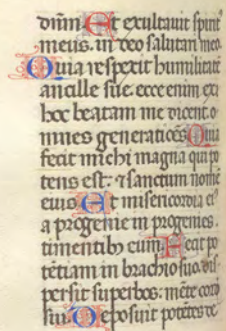 dnm̄. Et exultauit spirit̄
meus. in deo salutari meo.
Quia respexit humilitatē
ancille sue. ecce enim ex
hoc beatam me dicent o
mnes generatiōes. Quia
fecit michi magna qui po
tens est. ⁊ sanctum nomē
eius. Et misericordia ei⁹
a progenie in progenies.
timentibꝫ eum. Fecit po
tētiam in brachio suo. dis
persit superbos. mēte cord
sui. Deposuit potētes de